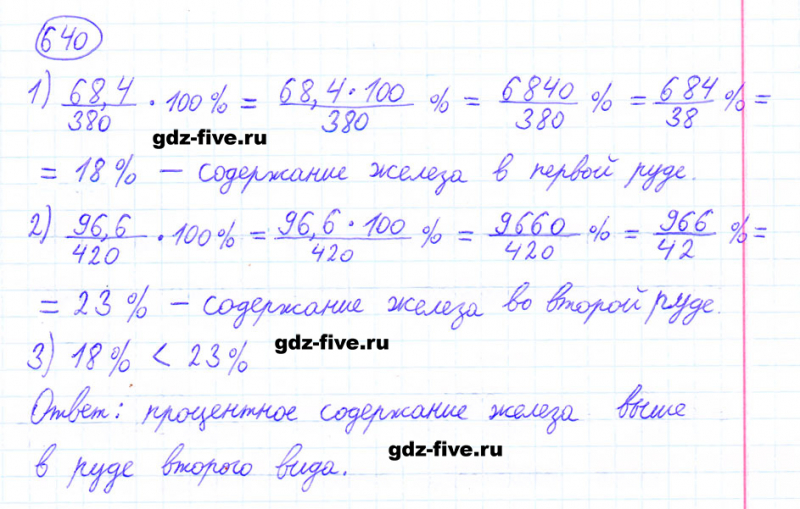 640
1) 68,4/380 · 100% = 68,4·100/380 % = 6840/380 % = 684/38 % =
gdz-five.ru
= 18% — содержание железа в первой руде.
2) 96,6/420 · 100% = 96,6·100/420 % = 9660/420 % = 966/42 % =
= 23% — содержание железа во второй руде.
3) 18% < 23%
gdz-five.ru
Ответ: процентное содержание железа выше
в руде второго вида.
gdz-five.ru